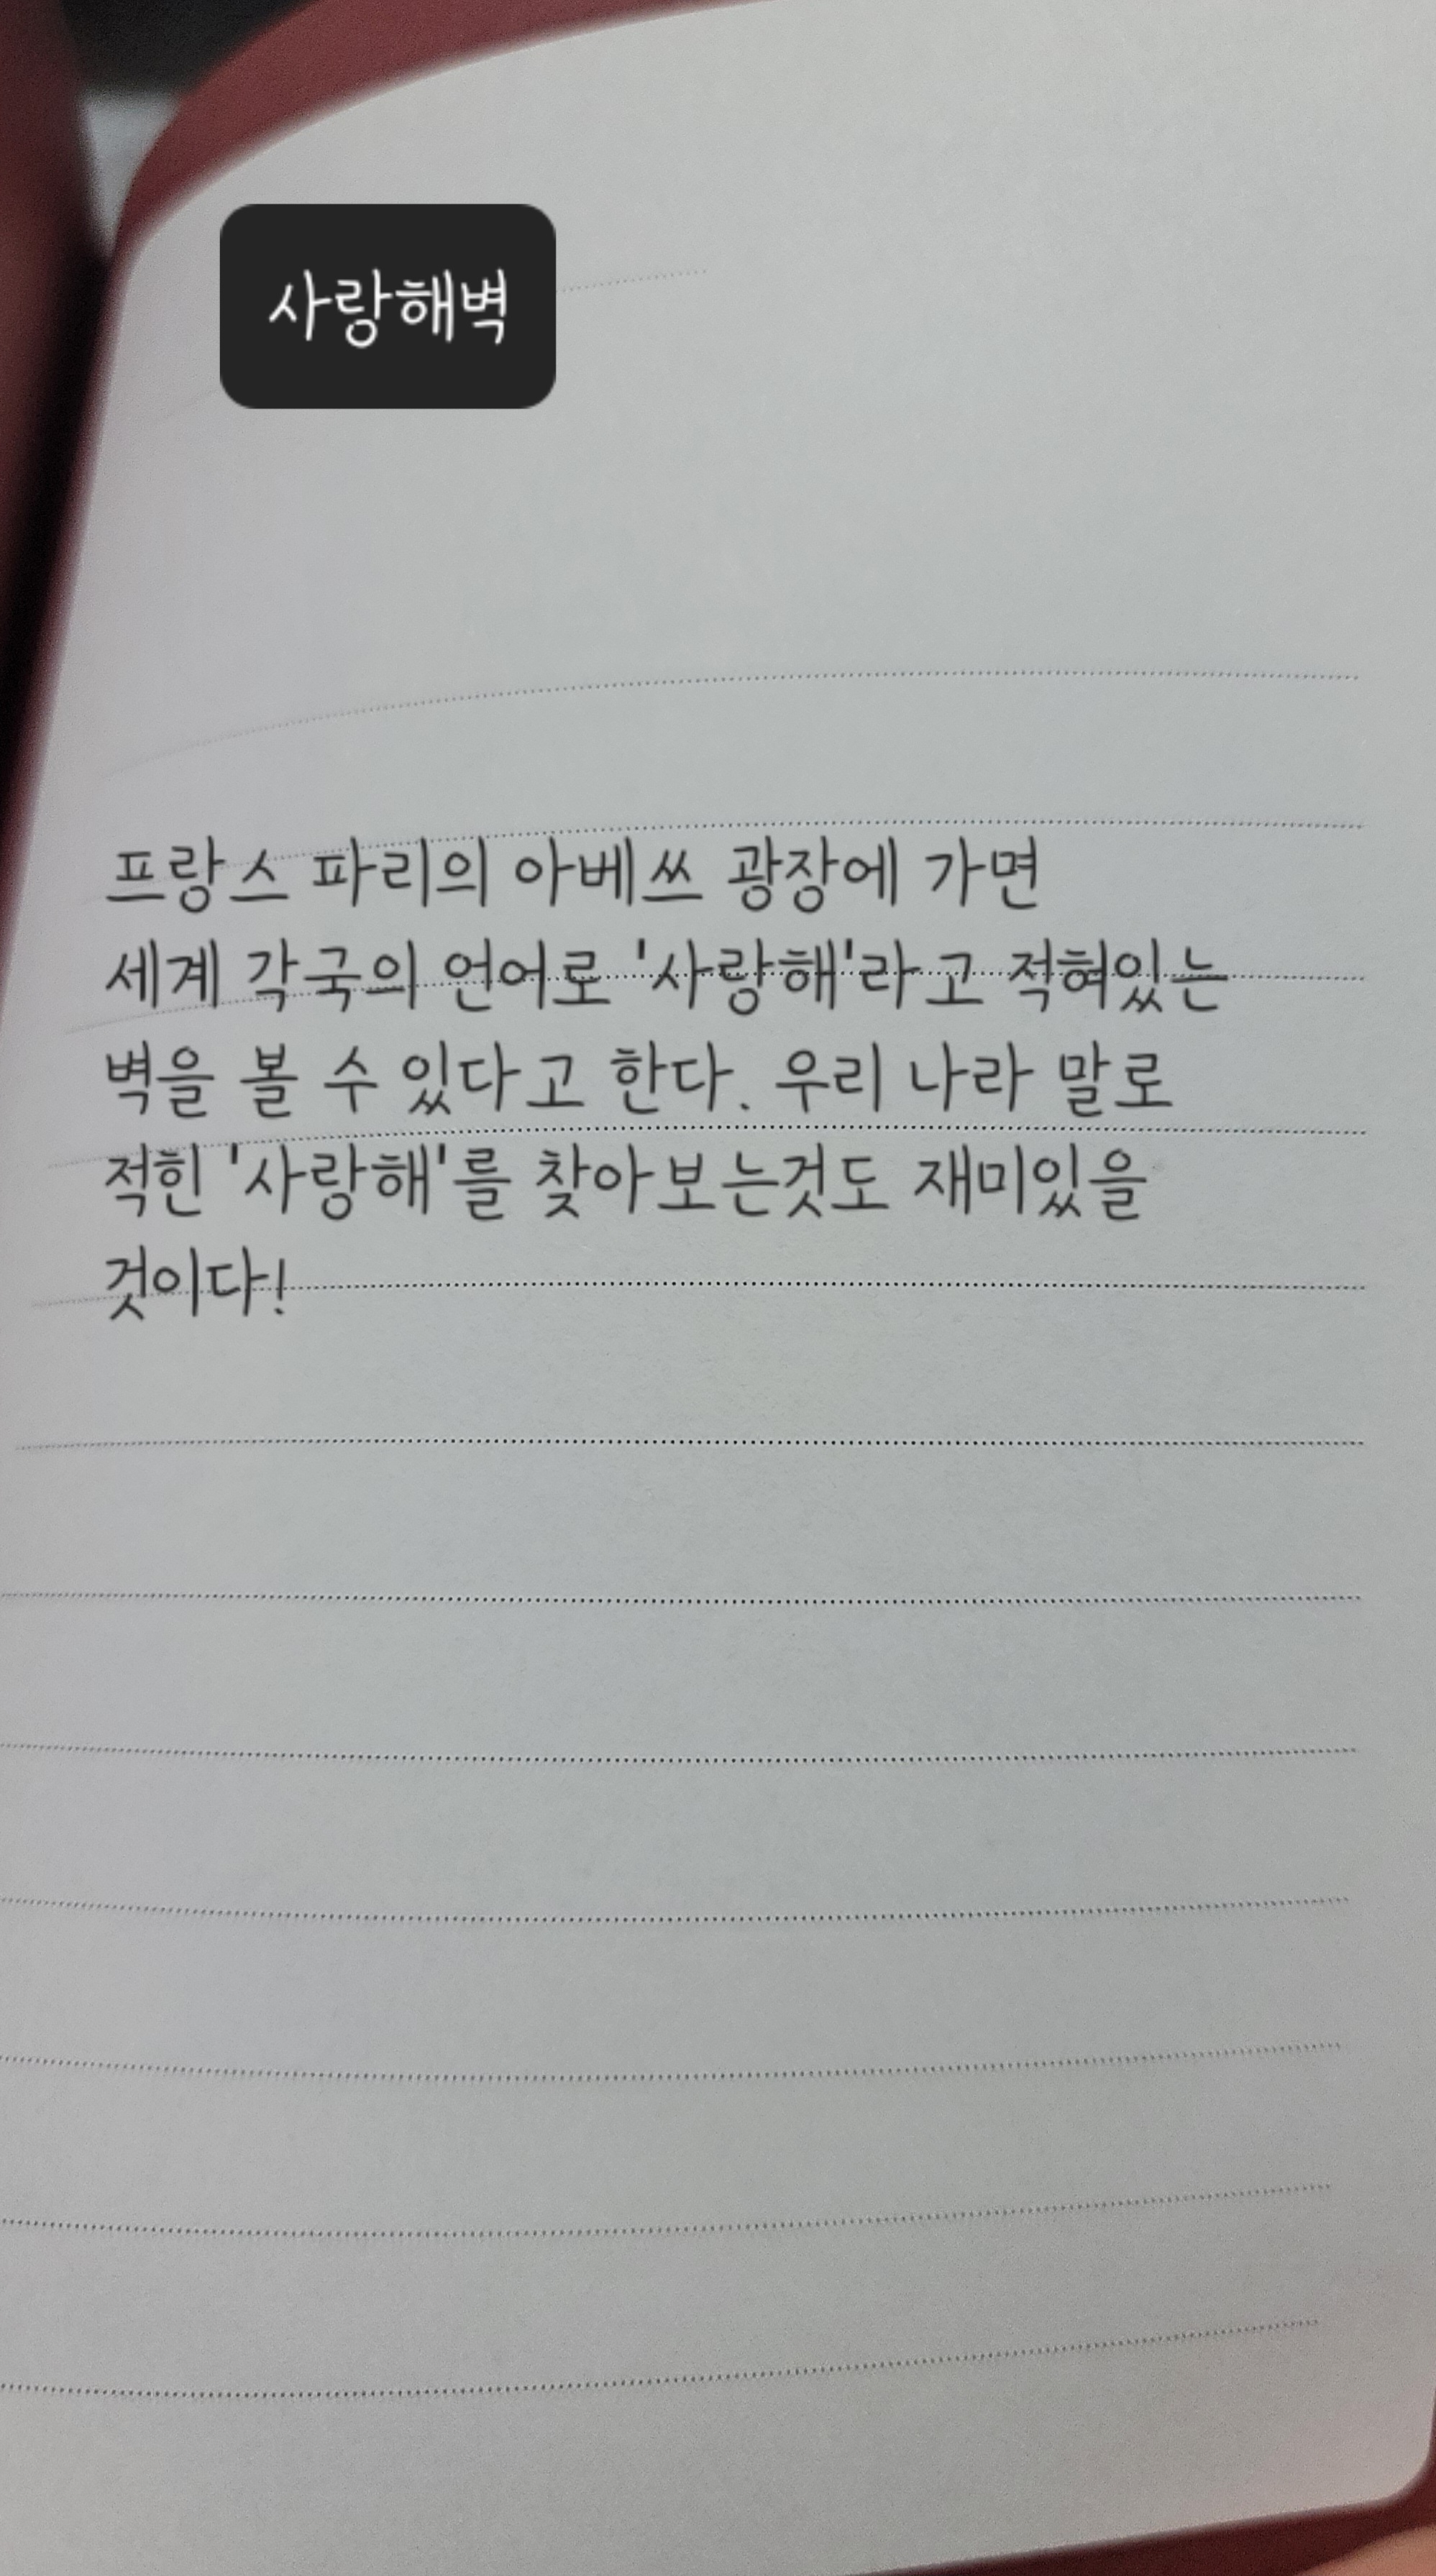 사랑해벽
프랑스 파리의 아베쓰 광장에 가면
세계 각국의 언어로 '사랑해'라고 적혀있는
벽을 볼 수 있다고 한다. 우리 나라 말로
적힌 '사랑해'를 찾아보는것도 재미있을
것이다!